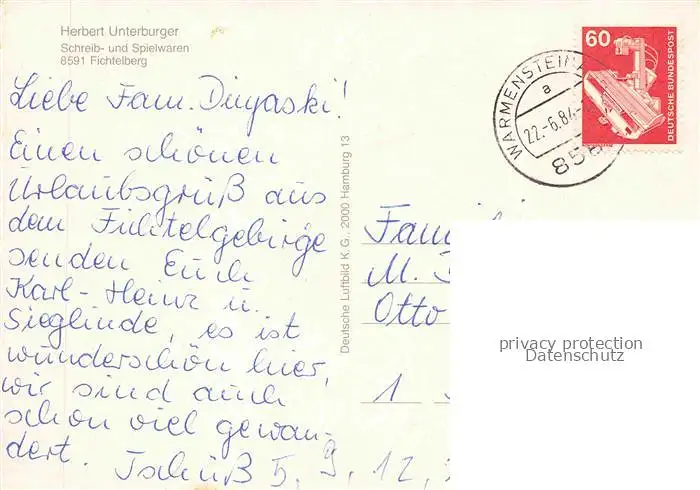 Herbert Unterburger
Schreib- und Spielwaren
8591 Fichtelberg
Liebe Fam. Dinjaski!
Einen schönen
Urlaubsgruß aus
dem Fichtelgebirge
senden Euch
Karl-Heinz u.
Sieglinde, es ist
wunderschön hier,
wir sind auch
schon viel gewan-
dert.
Tschüß 5, 9, 12,
Deutsche Luftbild K.G., 2000 Hamburg 13
60
DEUTSCHE BUNDESPOST
WARMENSTEINACH
a
22.-6.84
858
Famili
M.
Otto
1
privacy protection
Datenschutz